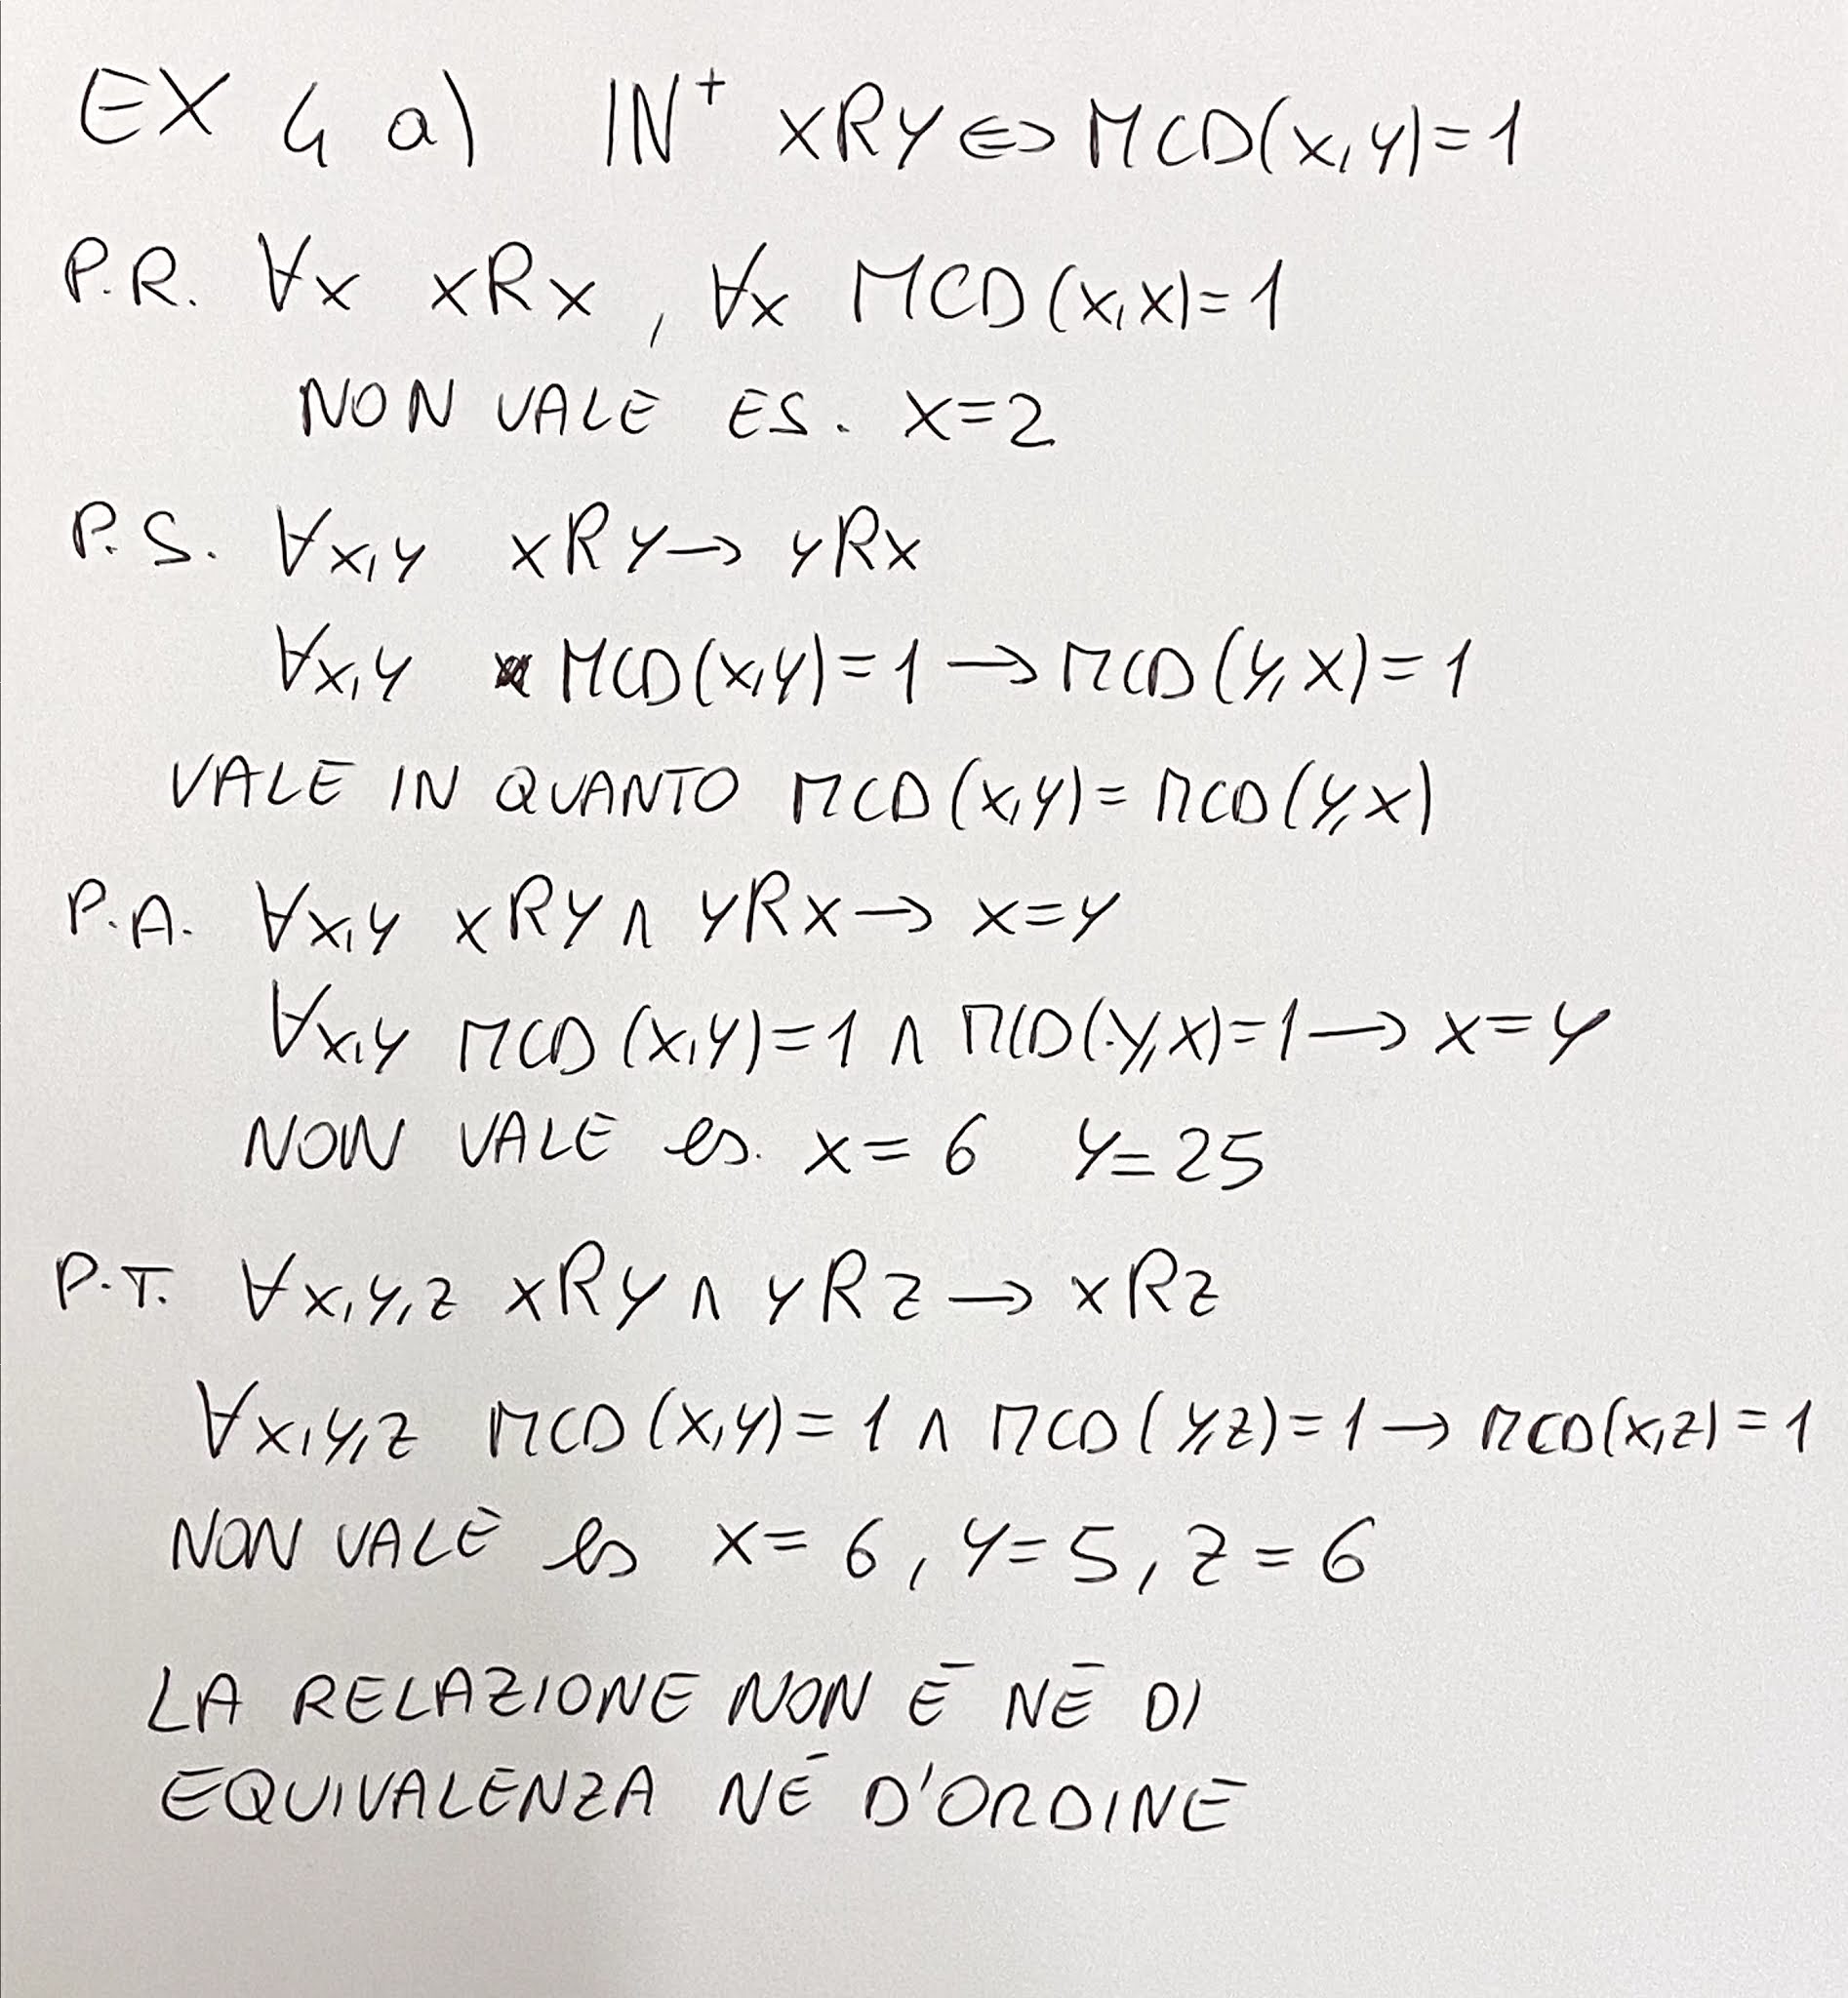 EX 4 a) IN⁺ xRy ⇔ MCD(x,y)=1
P.R. ∀x xRx, ∀x MCD(x,x)=1
NON VALE ES. X=2
P.S. ∀x,y xRy→ yRx
∀x,y MCD(x,y)=1 → MCD(y,x)=1
VALE IN QUANTO MCD(x,y)= MCD(y,x)
P.A. ∀x,y xRy ∧ yRx → x=y
∀x,y MCD(x,y)=1 ∧ MCD(y,x)=1 → x=y
NON VALE es. x= 6 y=25
P.T. ∀x,y,z xRy ∧ yRz → xRz
∀x,y,z MCD(x,y)= 1 ∧ MCD(y,z)=1 → MCD(x,z)=1
NON VALE es x= 6, y=5, z=6
LA RELAZIONE NON È NÉ DI
EQUIVALENZA NÉ D'ORDINE